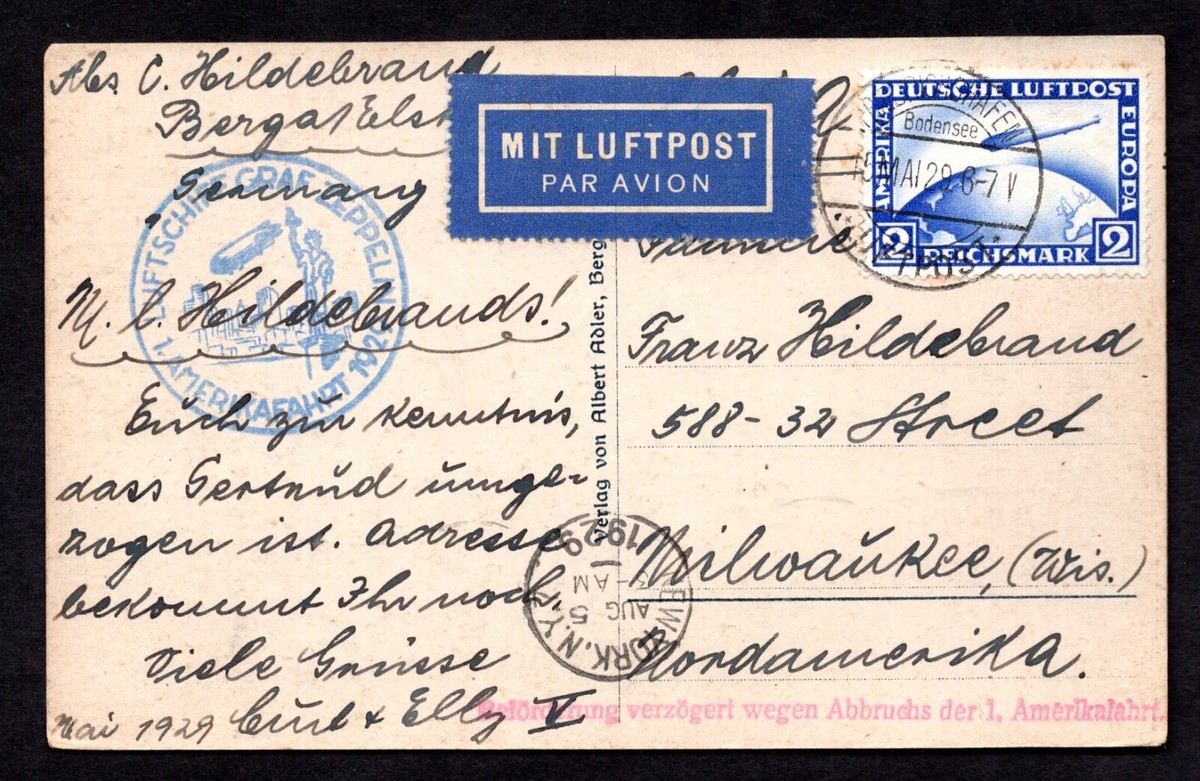 Abs C. Hildebrand
Berga/Elst
Germany
M. l. Hildebrands!
Euch zur Kenntnis,
dass Gertrud umge-
zogen ist. Adresse
bekommt Ihr noch.
Viele Grüsse
Mai 1929 Curt & Elly
LUFTSCHIFF GRAF ZEPPELIN
1. AMERIKAFAHRT 1929
MIT LUFTPOST
PAR AVION
Verlag von Albert Adler, Berg
DEUTSCHE LUFTPOST
AMERIKA
EUROPA
2 REICHSMARK 2
FRIEDRICHSHAFEN
Bodensee
15 MAI 29 6-7 V
LUFTPOST
Franz Hildebrand
588-32 Street
Milwaukee, (Wis.)
Nordamerika.
NEW YORK, N.Y.
AUG 5
AM
1929
Beförderung verzögert wegen Abbruchs der 1. Amerikafahrt.